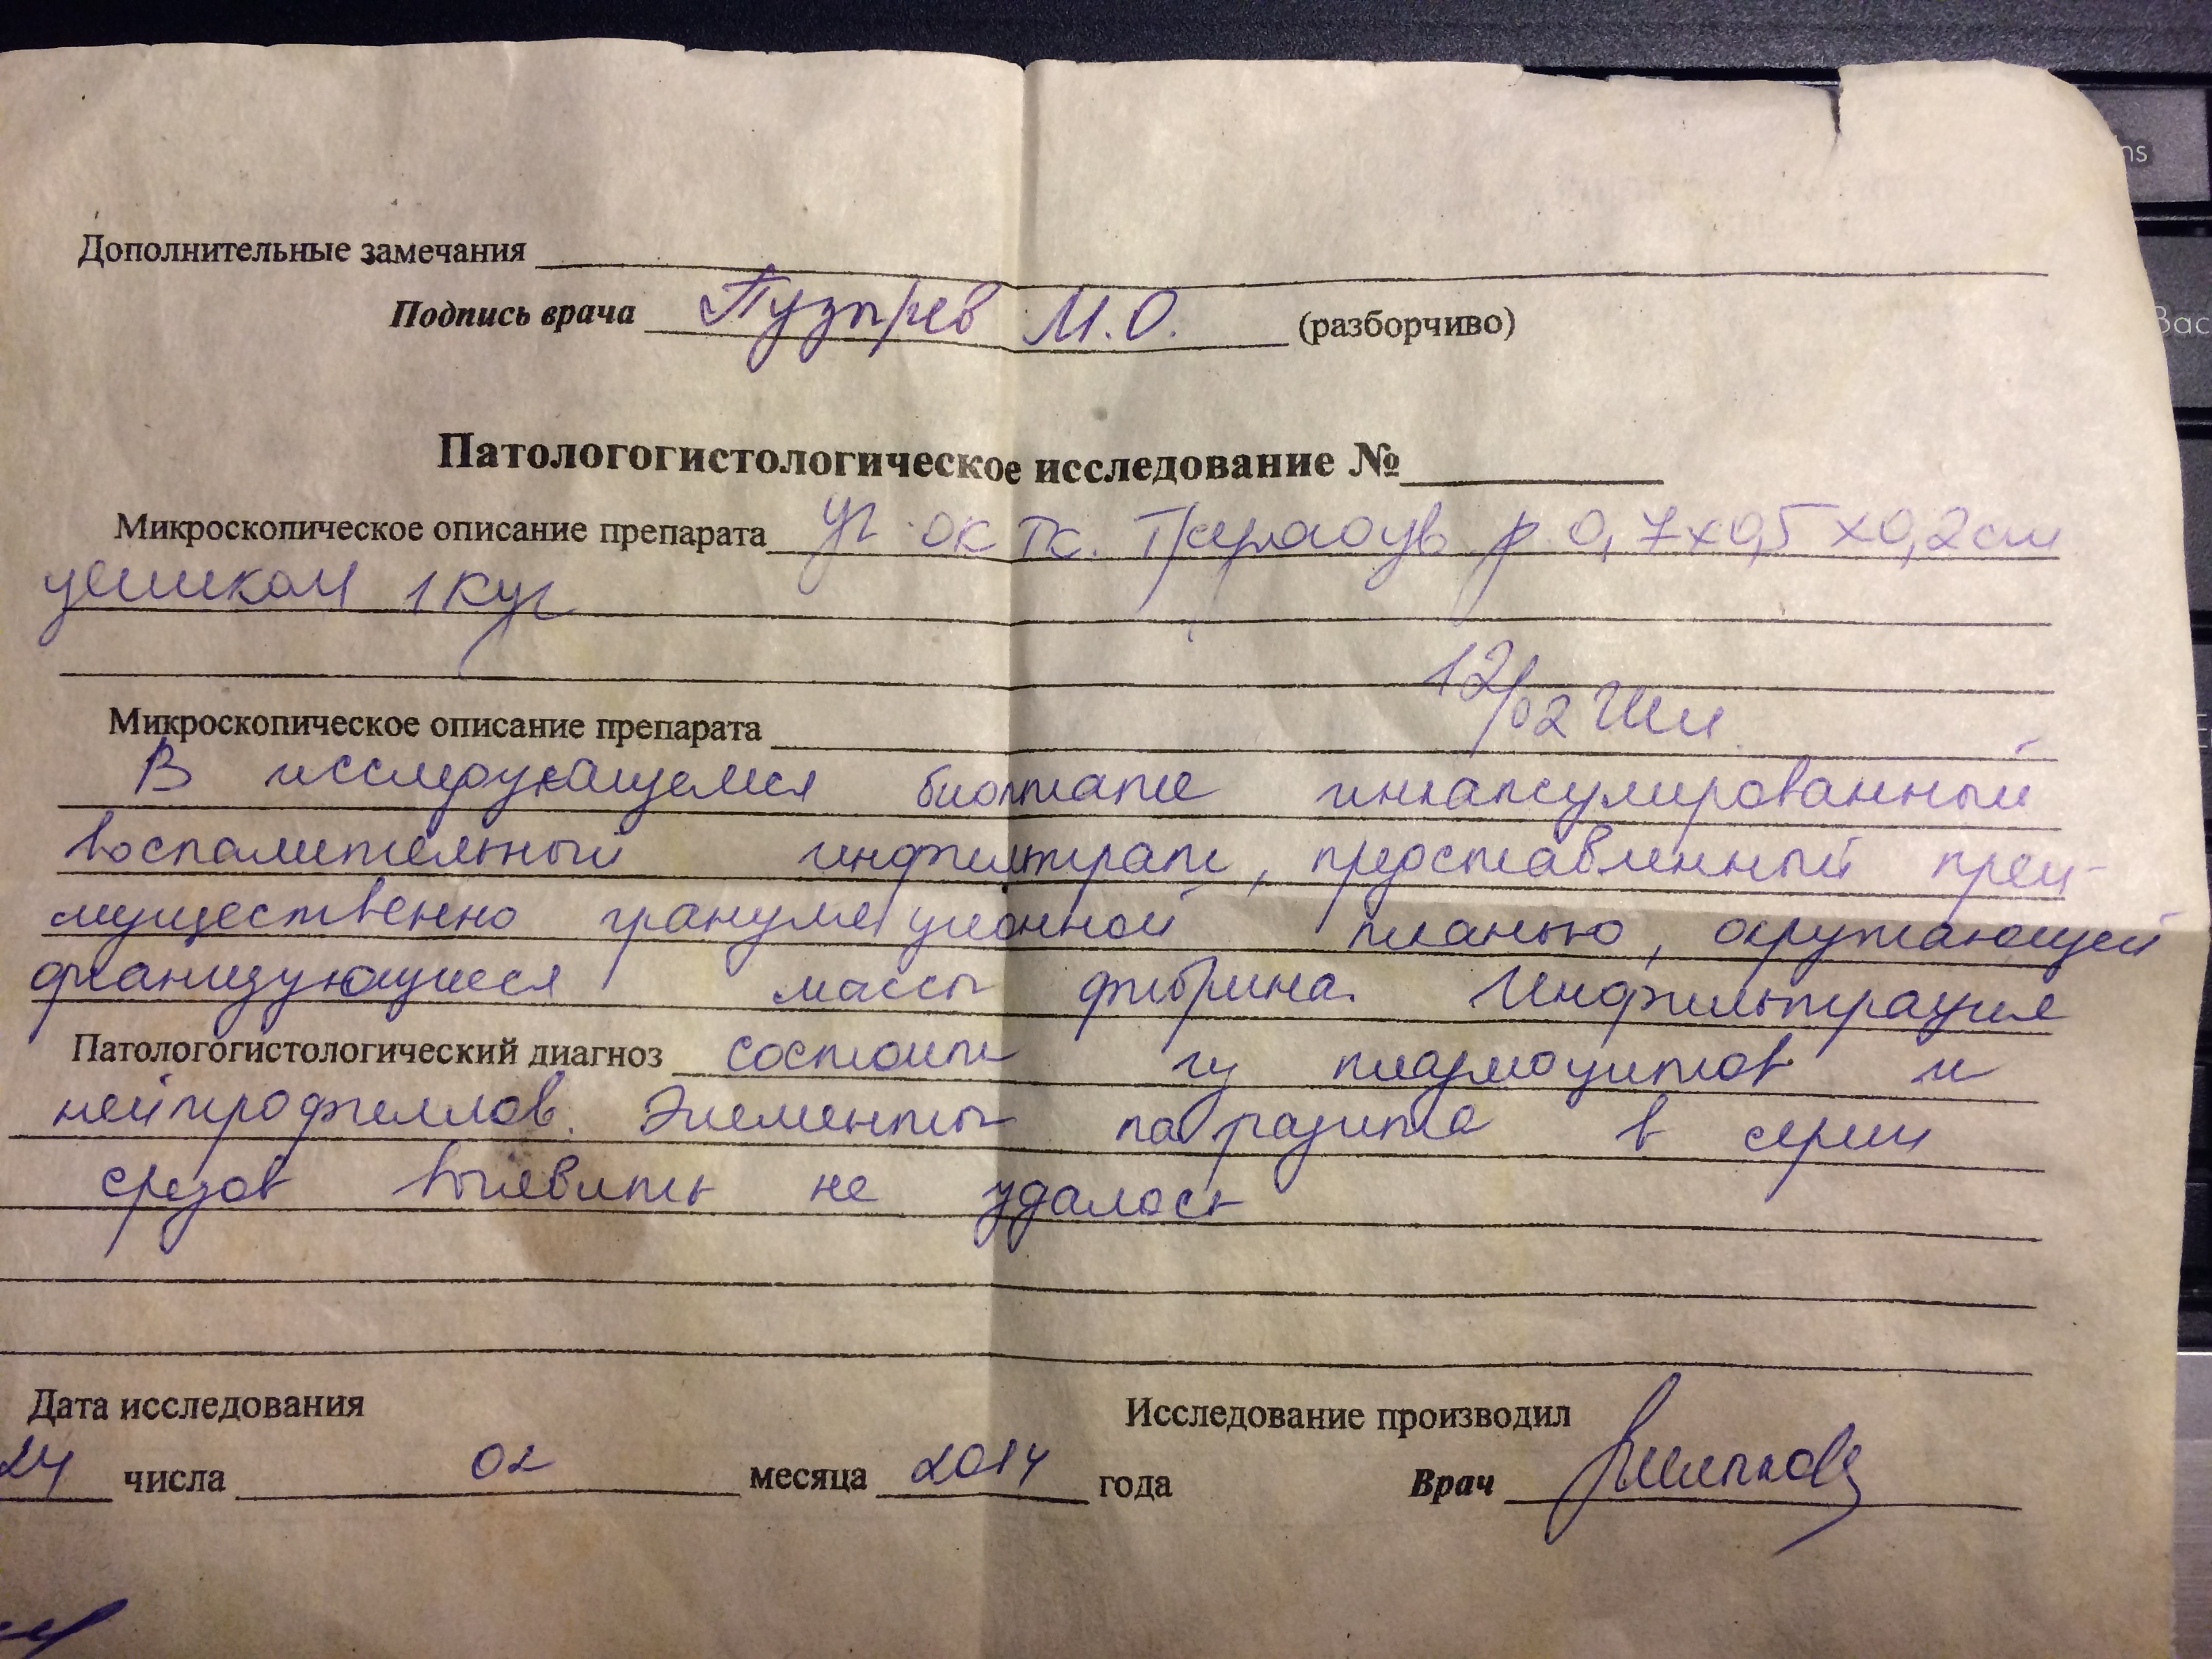 Дополнительные замечания
Подпись врача Пузырев М.О. (разборчиво)
Патологогистологическое исследование №
Микроскопическое описание препарата р 0,7х0,5х0,2см
1 кус
12/02
Микроскопическое описание препарата
В исследующемся биоптате инкапсулированный
воспалительный инфильтрат, представленный преи-
мущественно грануляционной тканью, окружающей
организующиеся массы фибрина. Инфильтрация
Патологогистологический диагноз состоит из плазмоцитов и
нейтрофиллов. Элементы паразита в серии
срезов выявить не удалось
Дата исследования Исследование производил
24 числа 02 месяца 2014 года Врач